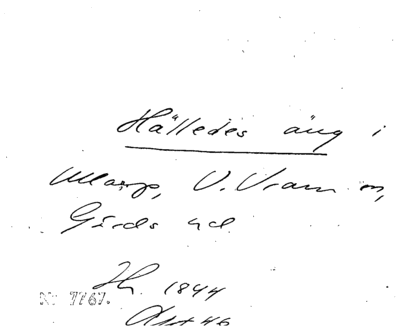 Hälledes äng i
Ullarp, V. Vram sn,
Gärds hd.
Hh. 1844
Akt 46
Nr 7767.